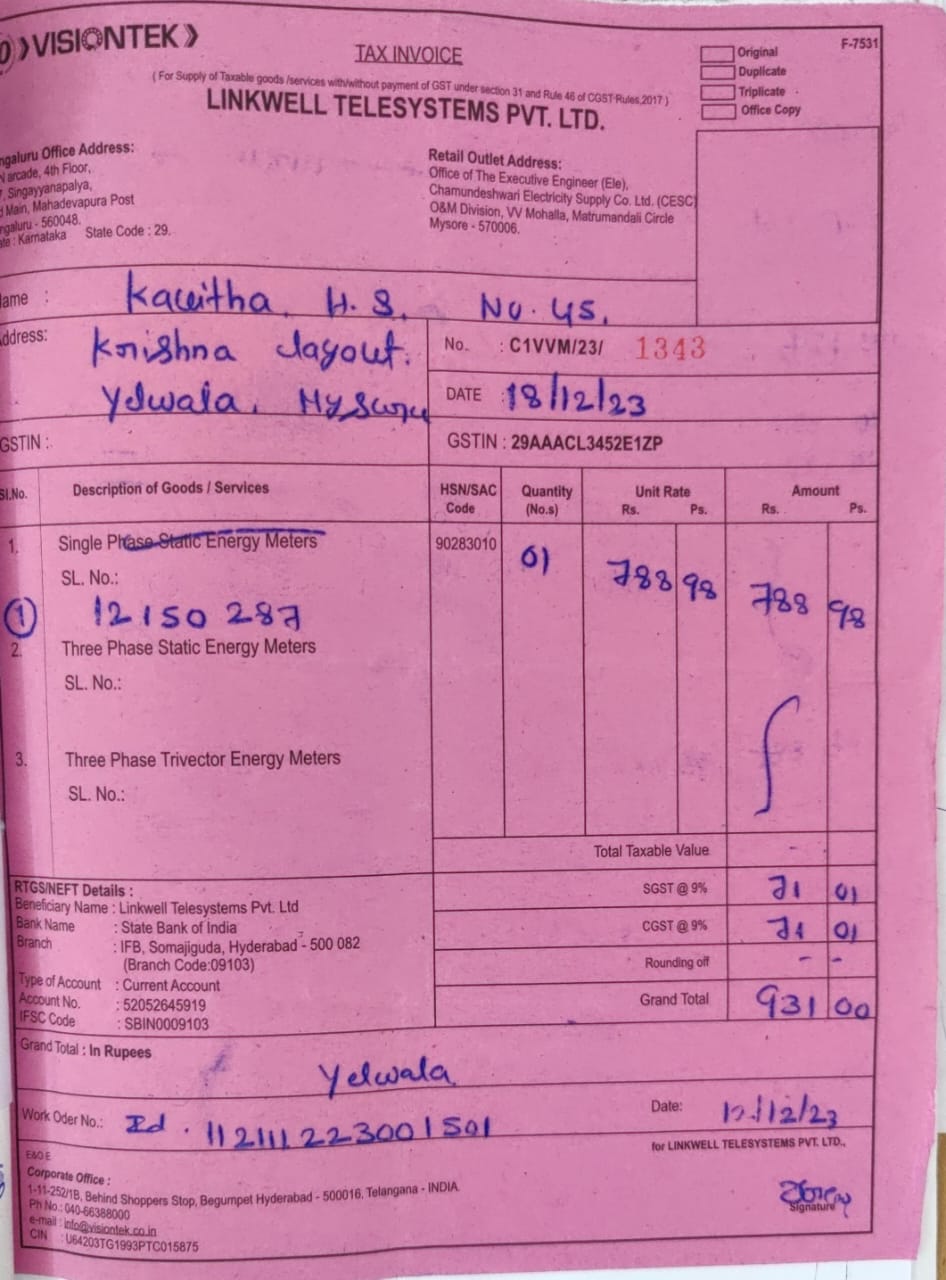 VISIONTEK
TAX INVOICE
F-7531
( For Supply of Taxable goods /services with/without payment of GST under section 31 and Rule 46 of CGST Rules,2017 )
LINKWELL TELESYSTEMS PVT. LTD.
Original
Duplicate
Triplicate
Office Copy
ngaluru Office Address:
N arcade, 4th Floor,
, Singayyanapalya,
Main, Mahadevapura Post
ngaluru - 560048.
ate : Karnataka State Code : 29.
Retail Outlet Address:
Office of The Executive Engineer (Ele),
Chamundeshwari Electricity Supply Co. Ltd. (CESC)
O&M Division, VV Mohalla, Matrumandali Circle
Mysore - 570006.
ame : Kavitha. H. S. No. 45,
ddress: Krishna layout.
Yelwala, Mysore
No. : C1VVM/23/ 1343
DATE : 18/12/23
GSTIN :
GSTIN : 29AAACL3452E1ZP
Sl.No. Description of Goods / Services HSN/SAC Code Quantity (No.s) Unit Rate Rs. Ps. Amount Rs. Ps.
1. Single Phase Static Energy Meters 90283010 01 788 98 788 98
SL. No.:
1 12150287
2. Three Phase Static Energy Meters
SL. No.:
3. Three Phase Trivector Energy Meters
SL. No.:
Total Taxable Value -
RTGS/NEFT Details :
Beneficiary Name : Linkwell Telesystems Pvt. Ltd
Bank Name : State Bank of India
Branch : IFB, Somajiguda, Hyderabad - 500 082
(Branch Code:09103)
Type of Account : Current Account
Account No. : 52052645919
IFSC Code : SBIN0009103
SGST @ 9% 71 01
CGST @ 9% 71 01
Rounding off - -
Grand Total 931 00
Grand Total : In Rupees
Yelwala
Work Oder No.: Id . 112111223001501
Date: /12/23
for LINKWELL TELESYSTEMS PVT. LTD.,
E&O E
Corporate Office :
1-11-252/1B, Behind Shoppers Stop, Begumpet Hyderabad - 500016, Telangana - INDIA.
Ph No.: 040-66388000
e-mail : info@visiontek.co.in
CIN : U64203TG1993PTC015875
Signature